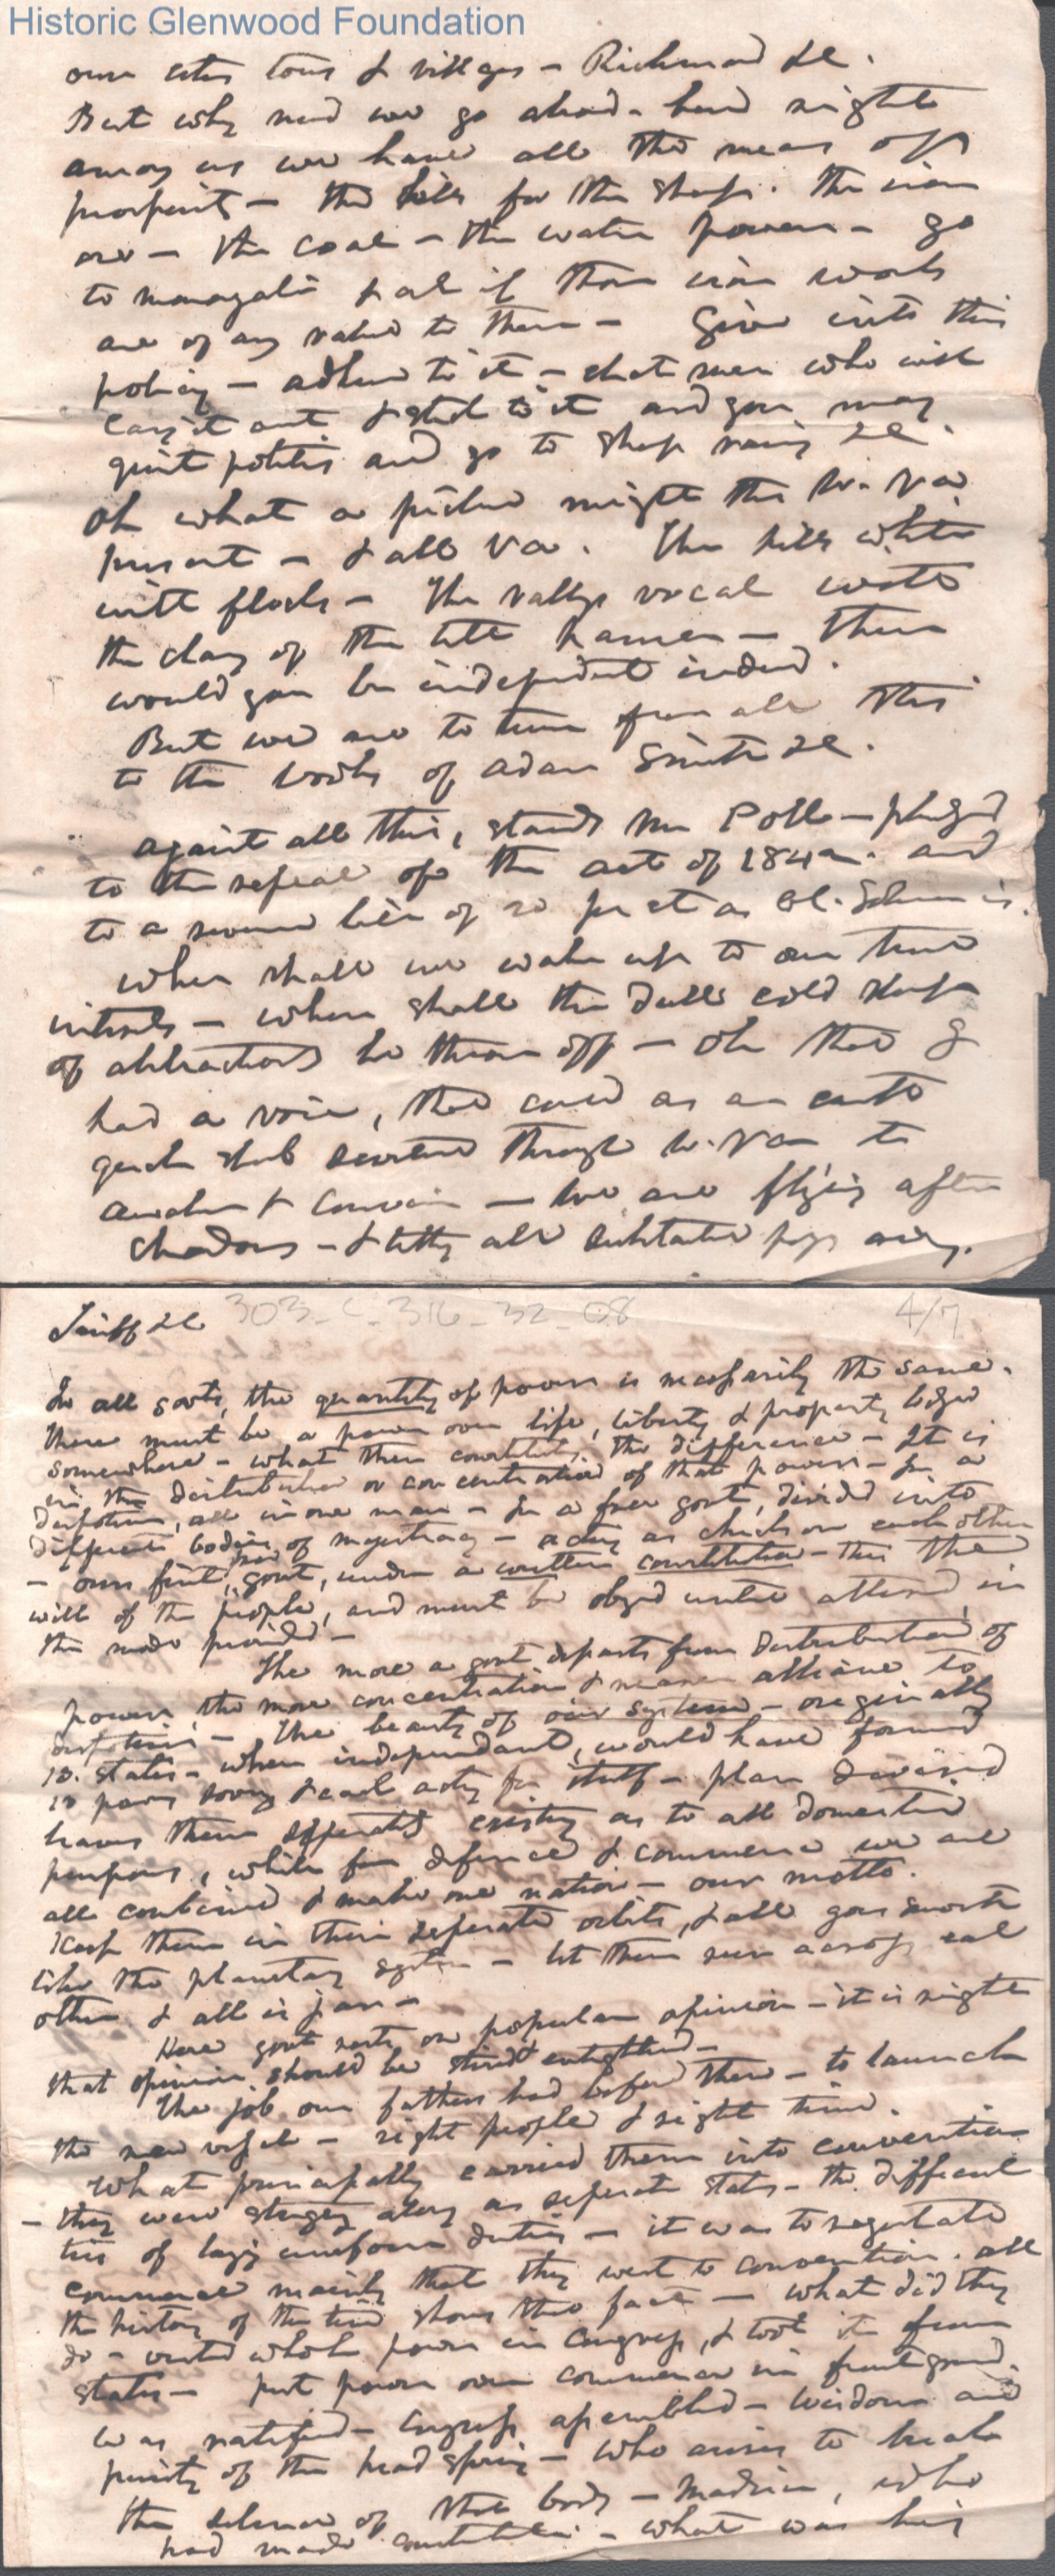 Historic Glenwood Foundation
our cities towns & villages – Richmond &c.
But why need we go abroad – here right
among us we have all the means of
prosperity – the hills for the sheep. the iron
ore – the coal – the water power – go
to & ask if their iron works
are of any value to them – Give into this
policy – adhere to it – elect men who will
carry it out & stick to it and you may
quit politics and go to sheep raising &c.
Oh what a picture might this W. Va
present – & all Va. The hills white
with flocks – The vallys vocal with
the clang of the tilt hammer – then
would you be independent indeed.
But we are to turn from all this
to the works of Adam Smith &c.
against all this, stands Mr Polk – pledged
to the repeal of the act of 1842. and
to a of 20 pr ct as is.
when shall we wake up to our true
interests – when shall the dull cold sleep
of abstractions be thrown off – Oh that I
had a voice, that could as an earth
quake through W. Va to
awaken & convince – we are flying after
shadows – & letting all substance pass away.
Tariff &c 303-C-316-32-08 4/7
In all govts, the quantity of power is necessarily the same.
there must be a power over life, liberty & property lodged
somewhere – what then constitutes the difference – It is
in the distribution or concentration of that power – In a
despotism, all in one man – In a free govt, divided into
different bodies of magistracy – acting as checks on each other
– our first free govt, under a written constitution – this the
will of the people, and must be obeyed until altered in
the mode provided –
The more a govt departs from distribution of
power the more concentration & nearer alliance to
despotism – The beauty of our system – originally
13. states – when independant, would have formed
13 & each acting for itself – plan devised
leaves them seperately existing as to all domestic
purposes, while for defence & commerce we are
all combined & make one nation – our motto.
Keep them in their seperate orbits, & all goes smooth
like the planetary system – let them run across each
other & all is jar –
Here govt rests on popular opinion – it is right
that opinion should be enlightened –
The job our fathers had before them – to launch
the new vessel – right people & right time.
What principally carried them into convention
– they were along as seperate states – the difficul
ties of laying uniform duties – it was to regulate
commerce mainly that they went to convention. all
the history of the time shows this fact – what did they
do – vested whole power in Congress, & took it from
states – put power over commerce in front ground.
was ratified – Congress assembled – wisdom and
purity of the head spring – who arises to break
the silence of that body – Madison, who
had made constitution – what was his